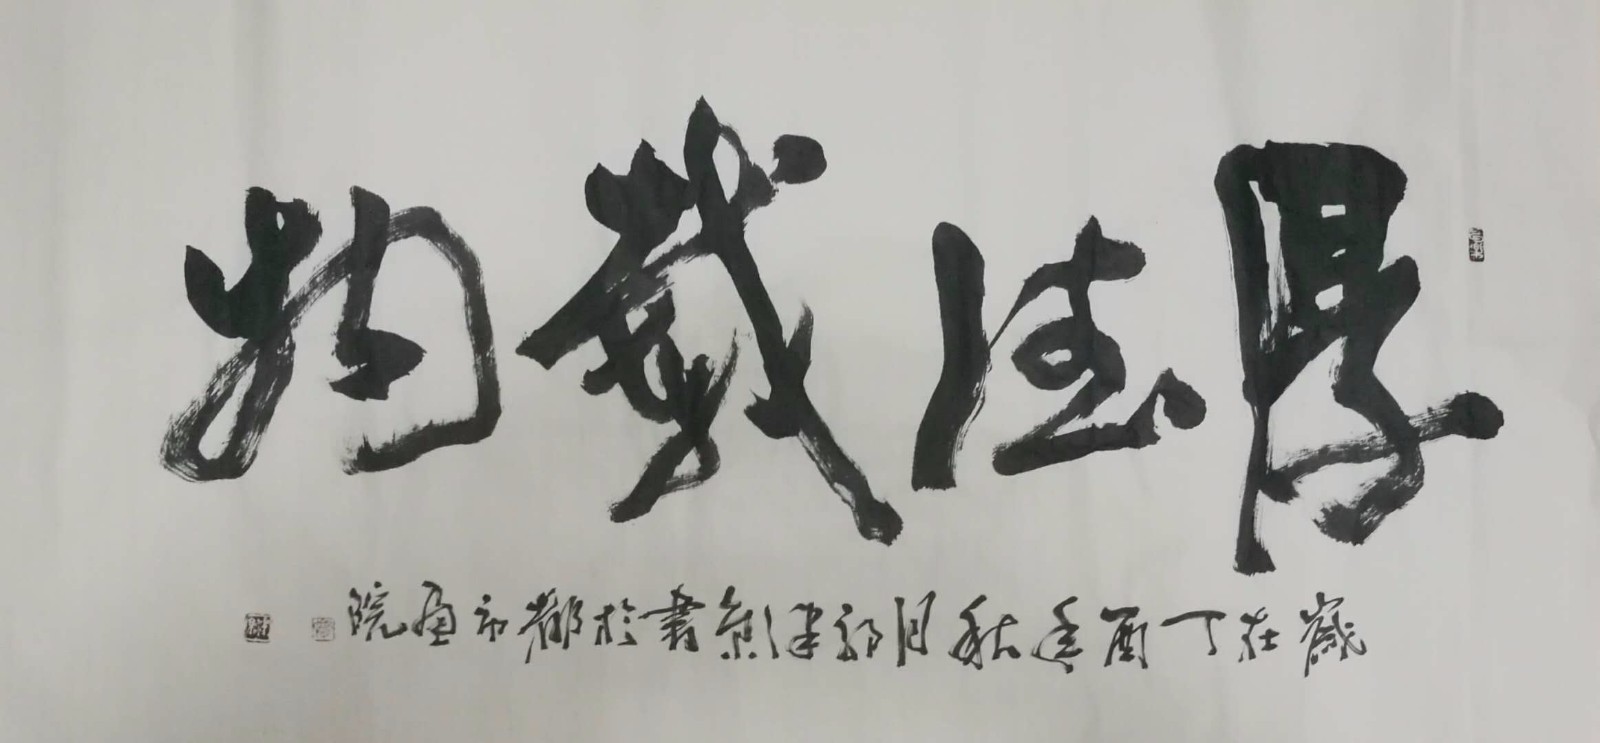 厚德載物
歲在丁酉年秋月郭津彰書於都市画院